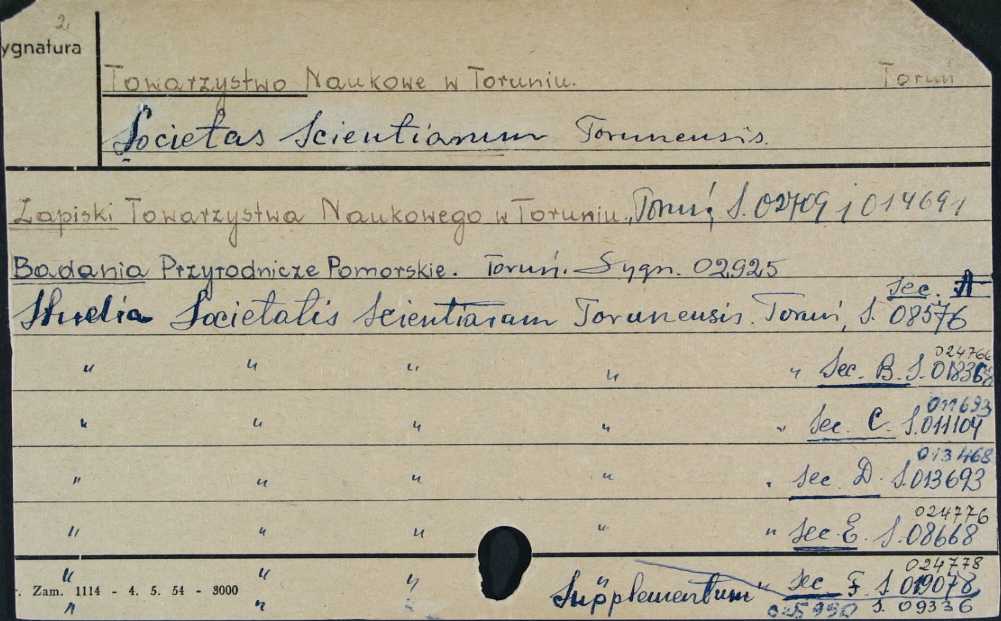 2.
ygnatura
Towarzystwo Naukowe w Toruniu. Toruń
Societas Scientiarum Torunensis.
Zapiski Towarzystwa Naukowego w Toruniu, Toruń, S. 02709 i 014691
Badania Przyrodnicze Pomorskie. Toruń. Sygn. 02925
sec. A
Studia Societatis Scientiarum Torunensis. Toruń, S. 08576
024766
" " " " " Sec. B. S. 018368
011693
" " " " " Sec. C. S. 011104
013468
" " " " " Sec. D. S. 013693
024776
" " " " " Sec. E. S. 08668
024778
" " " " " Sec F. S. 019078
Zam. 1114 - 4. 5. 54 - 3000
" " " Supplementum S. 09336